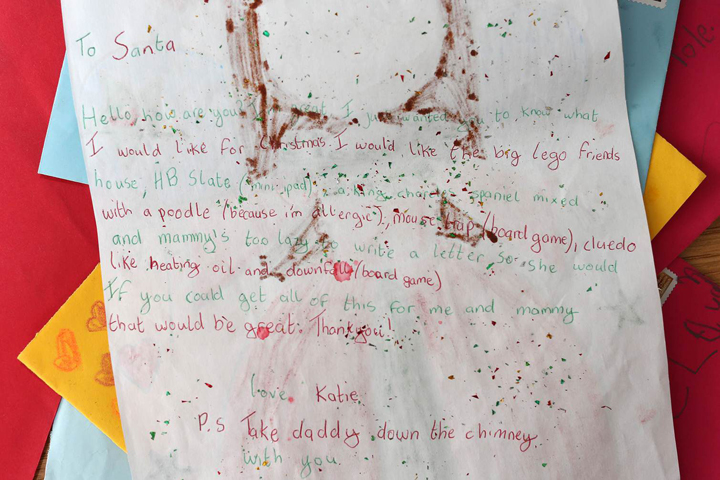 To Santa
Hello, how are you? I'm great. I just wanted you to know what
I would like for Christmas. I would like the big lego friends
house, HB Slate (mini ipad), a king charles spaniel mixed
with a poodle (because i'm allergic), mouse trap (board game), cluedo
and mammy's too lazy to write a letter so she would
like heating oil and downfall (board game)
If you could get all of this for me and mammy
that would be great. Thankyou!
love Katie
P.S Take daddy down the chimney
with you.